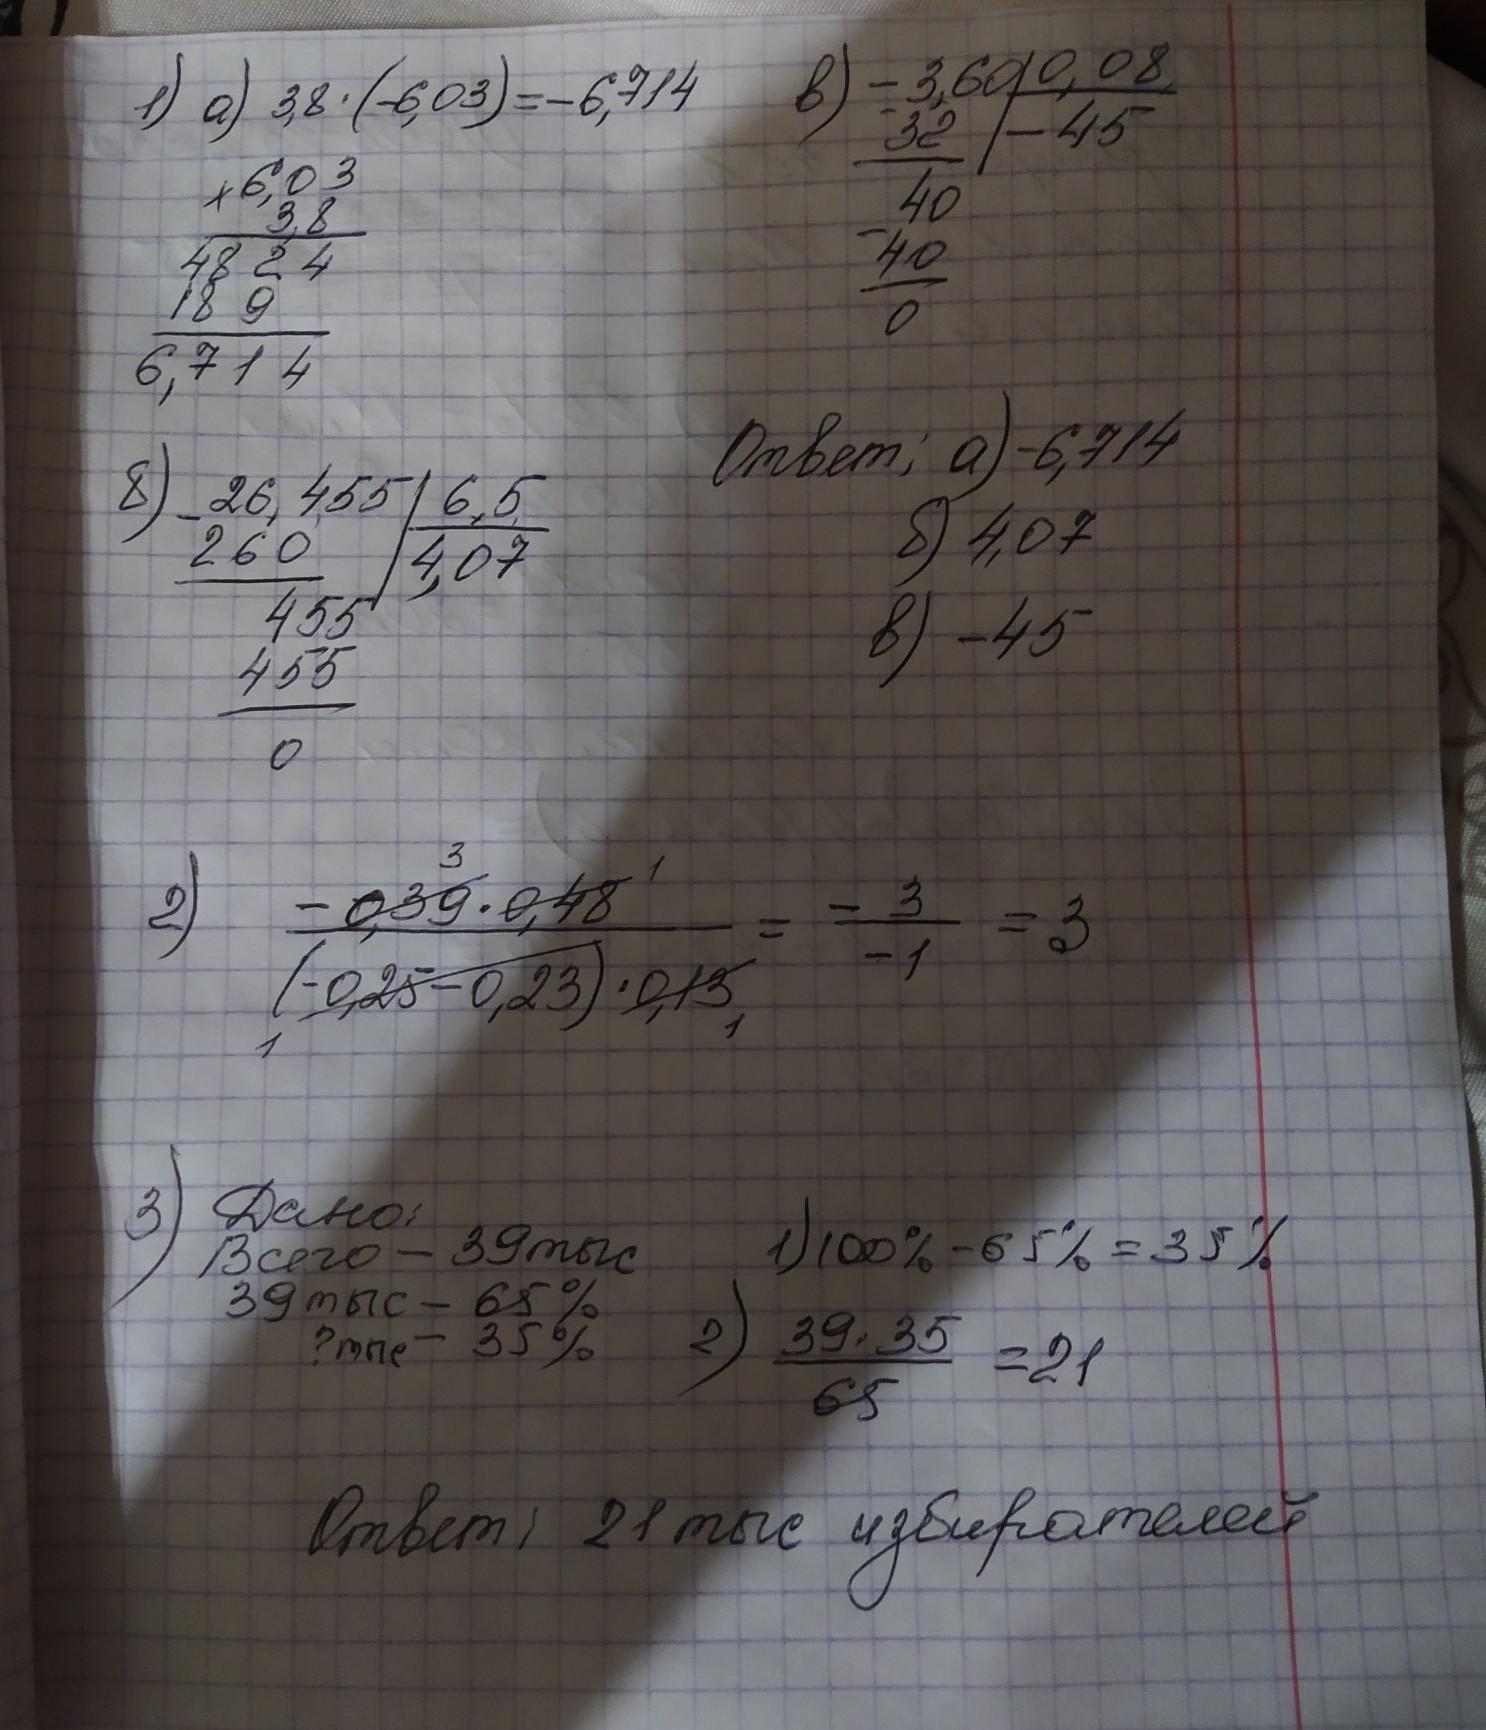 1) а) 3,8 · (-6,03) = -6,714
× 6,03
3,8
4824
189
6,714
б) -26,455 | 6,5
260 | 4,07
455
455
0
в) -3,60 | 0,08
-32 | -45
40
-40
0
Ответ: а) -6,714
б) 4,07
в) -45
2) 3 1
-0,39 · 0,48 / (-0,25 - 0,23) · 0,13 = -3 / -1 = 3
1 1
3) Дано:
Всего - 39 тыс
39 тыс - 65%
? тыс - 35%
1) 100% - 65% = 35%
2) 39 · 35 / 65 = 21
Ответ: 21 тыс избирателей